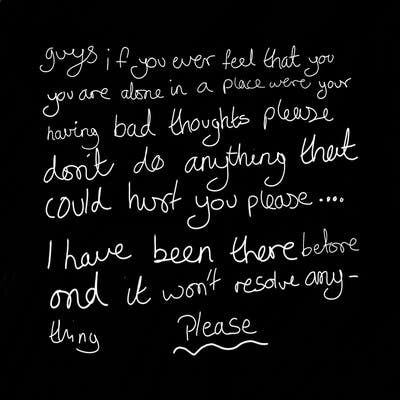 guys if you ever feel that you
you are alone in a place were your
having bad thoughts please
don't do anything that
could hurt you please....
I have been there before
and it won't resolve any-
thing Please